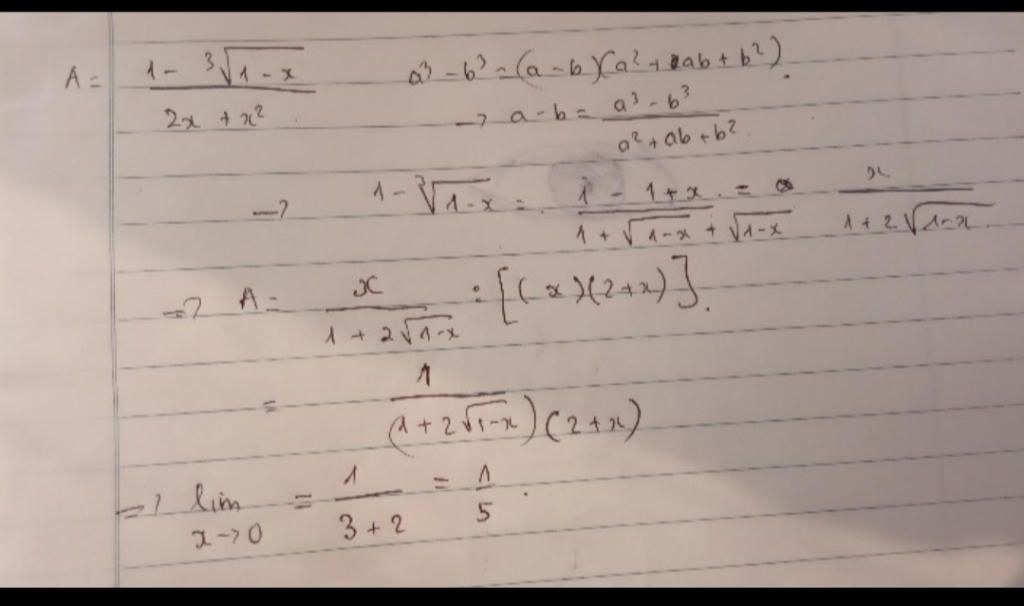 A = \frac{1 - \sqrt[3]{1-x}}{2x + x^2} a^3 - b^3 = (a - b)(a^2 + ab + b^2).
→ a - b = \frac{a^3 - b^3}{a^2 + ab + b^2}.
→ 1 - \sqrt[3]{1-x} = \frac{1 - 1 + x}{1 + \sqrt{1-x} + \sqrt{1-x}} = \frac{x}{1 + 2\sqrt{1-x}}.
=> A = \frac{x}{1 + 2\sqrt{1-x}} : [(x)(2+x)].
= \frac{1}{(1 + 2\sqrt{1-x})(2+x)}
=> \lim_{x→0} = \frac{1}{3+2} = \frac{1}{5}.